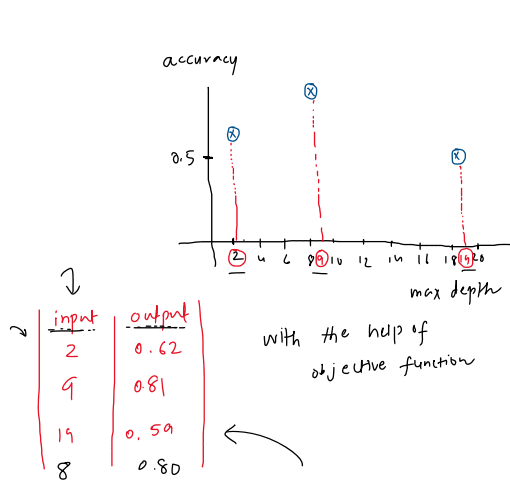 accuracy
0.5
2 4 6 8 9 10 12 14 16 18 19 20
max depth
input output
2 0.62
9 0.81
19 0.59
8 0.80
with the help of
objective function